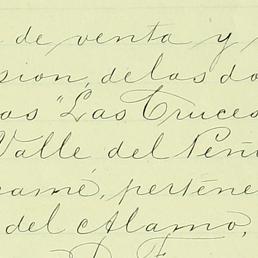 de venta y
sion, de las do
as "Las Cruces
Valle del Peñ
camé, pertene
del Alamo,